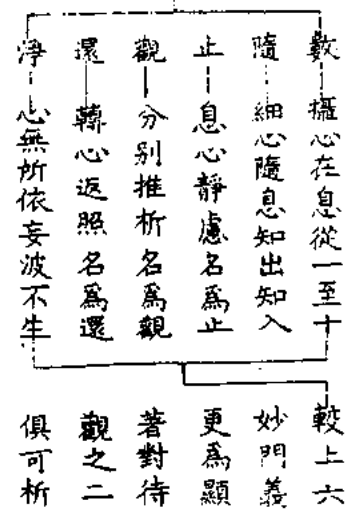 數 攝心在息從一至十
隨 細心隨息知出知入
止 息心靜慮名爲止
觀 分别推析名爲觀
還 轉心返照名爲還
淨 心無所依妄波不生
較上六
妙門義
更爲顯
著對待
觀之二
俱可析